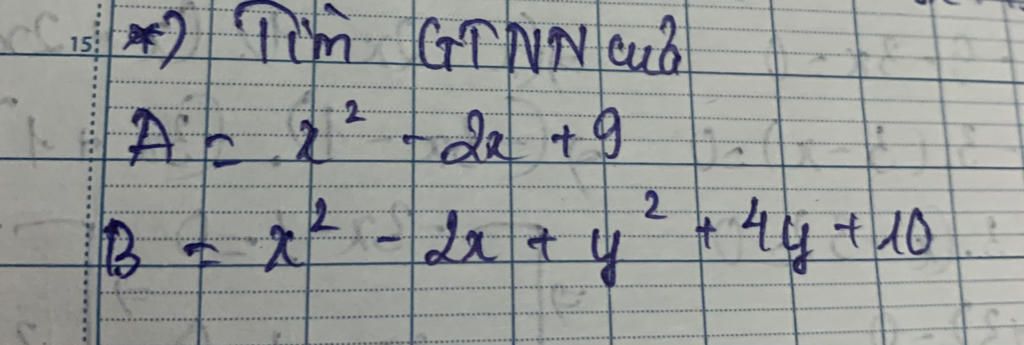 15 *) Tìm GTNN của
A = x² - 2x + 9
B = x² - 2x + y² + 4y + 10